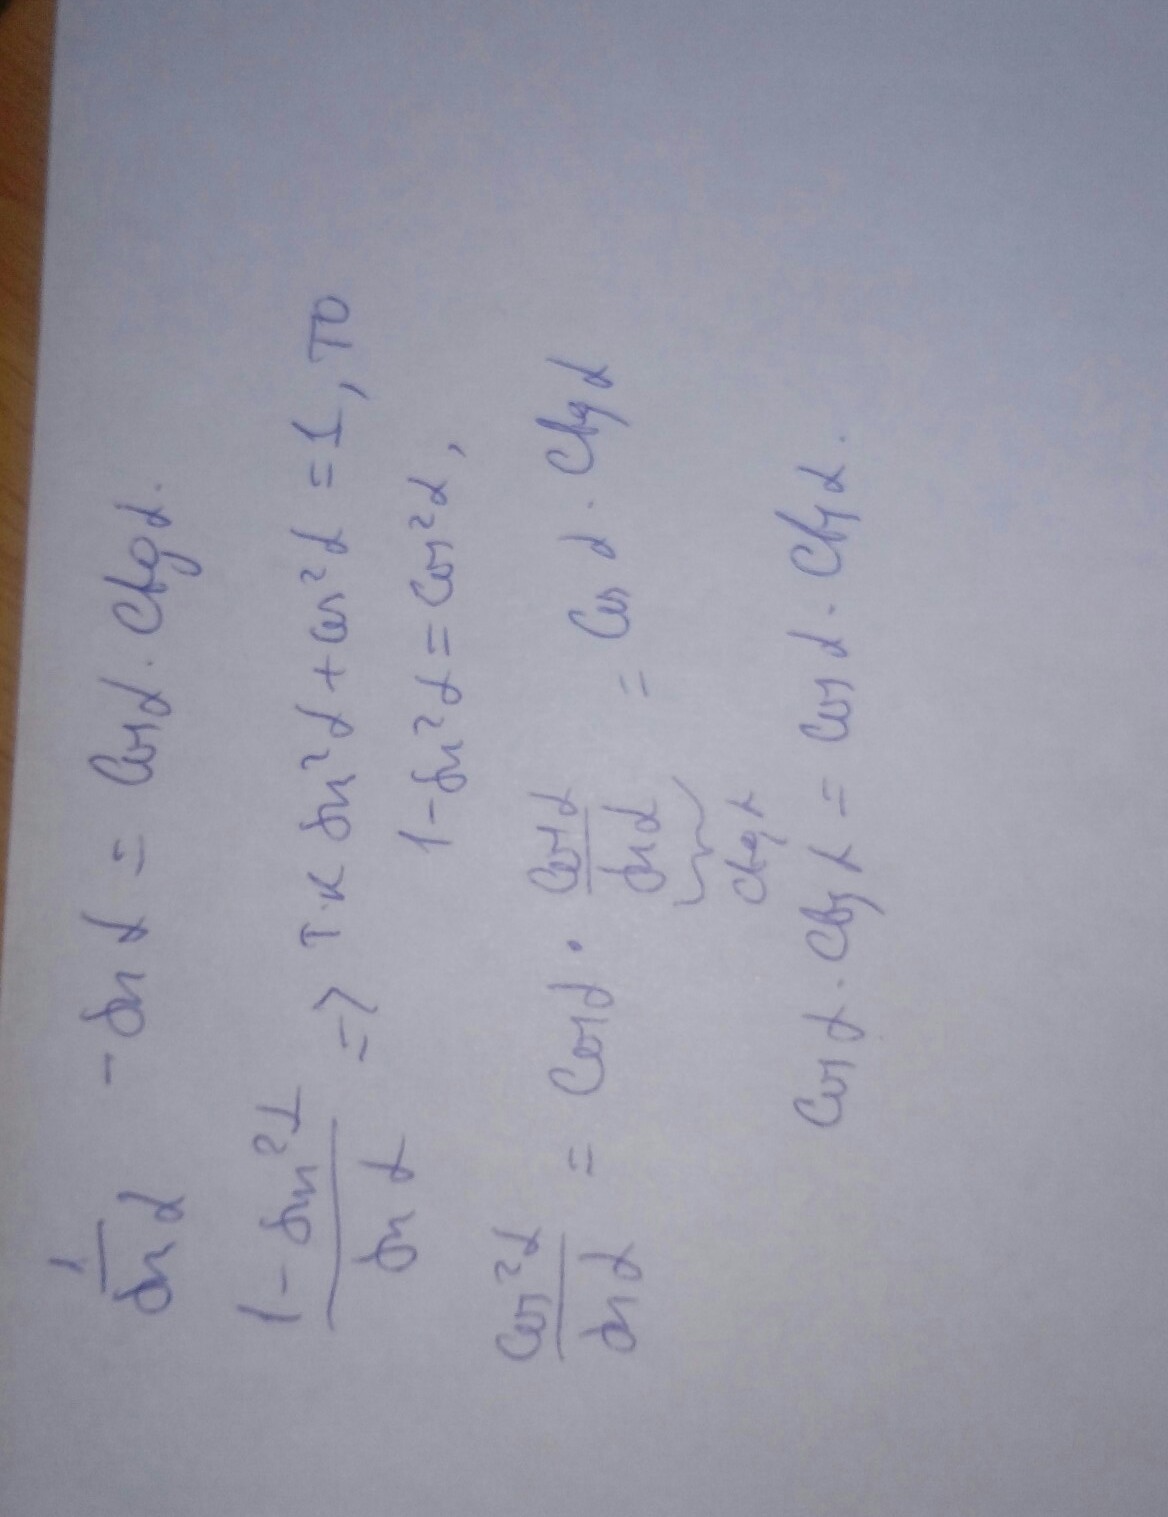 1/sin α - sin α = cos α · ctg α.
(1 - sin²α)/sin α => т.к sin²α + cos²α = 1, то
1 - sin²α = cos²α,
cos²α/sin α = cos α · cos α/sin α = cos α · ctg α
ctg α
cos α · ctg α = cos α · ctg α.